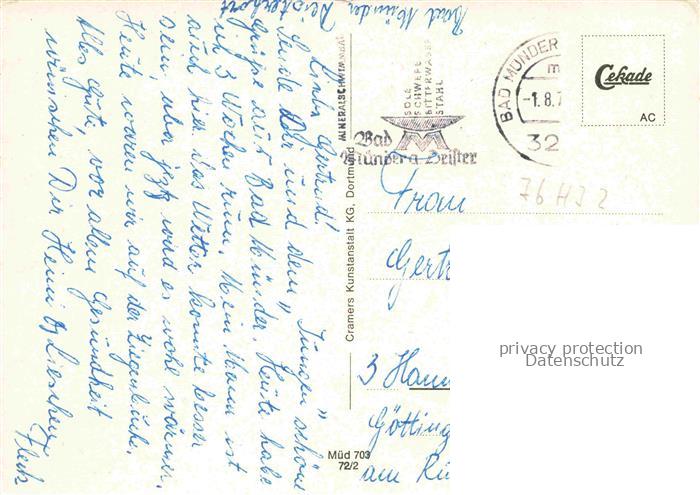 Bad Münder Deisterhort
Liebe Gertrud!
Sende Dir und dem "Jungen" schöne
Grüße aus Bad Münder. Heute habe
ich 3 Wochen rum. Mein Mann ist
auch hier. Das Wetter könnte besser
sein, aber jetzt wird es wohl wärmer.
Heute waren wir auf der Ziegenbuche.
Alles Gute, vor allem Gesundheit
wünschen Dir Heini & Lieschen
Fleck
MINERALSCHWIMMBAD
SOLE
SCHWEFEL
BITTERWASSER
STAHL
Bad
Münder a. Deister
BAD MÜNDER
-1.8.7
32
Cekade
AC
76 HJ 2
Cramers Kunstanstalt KG, Dortmund
Frau
Gertr
3 Hann
Götting
am Rü
Müd 703
72/2
privacy protection
Datenschutz